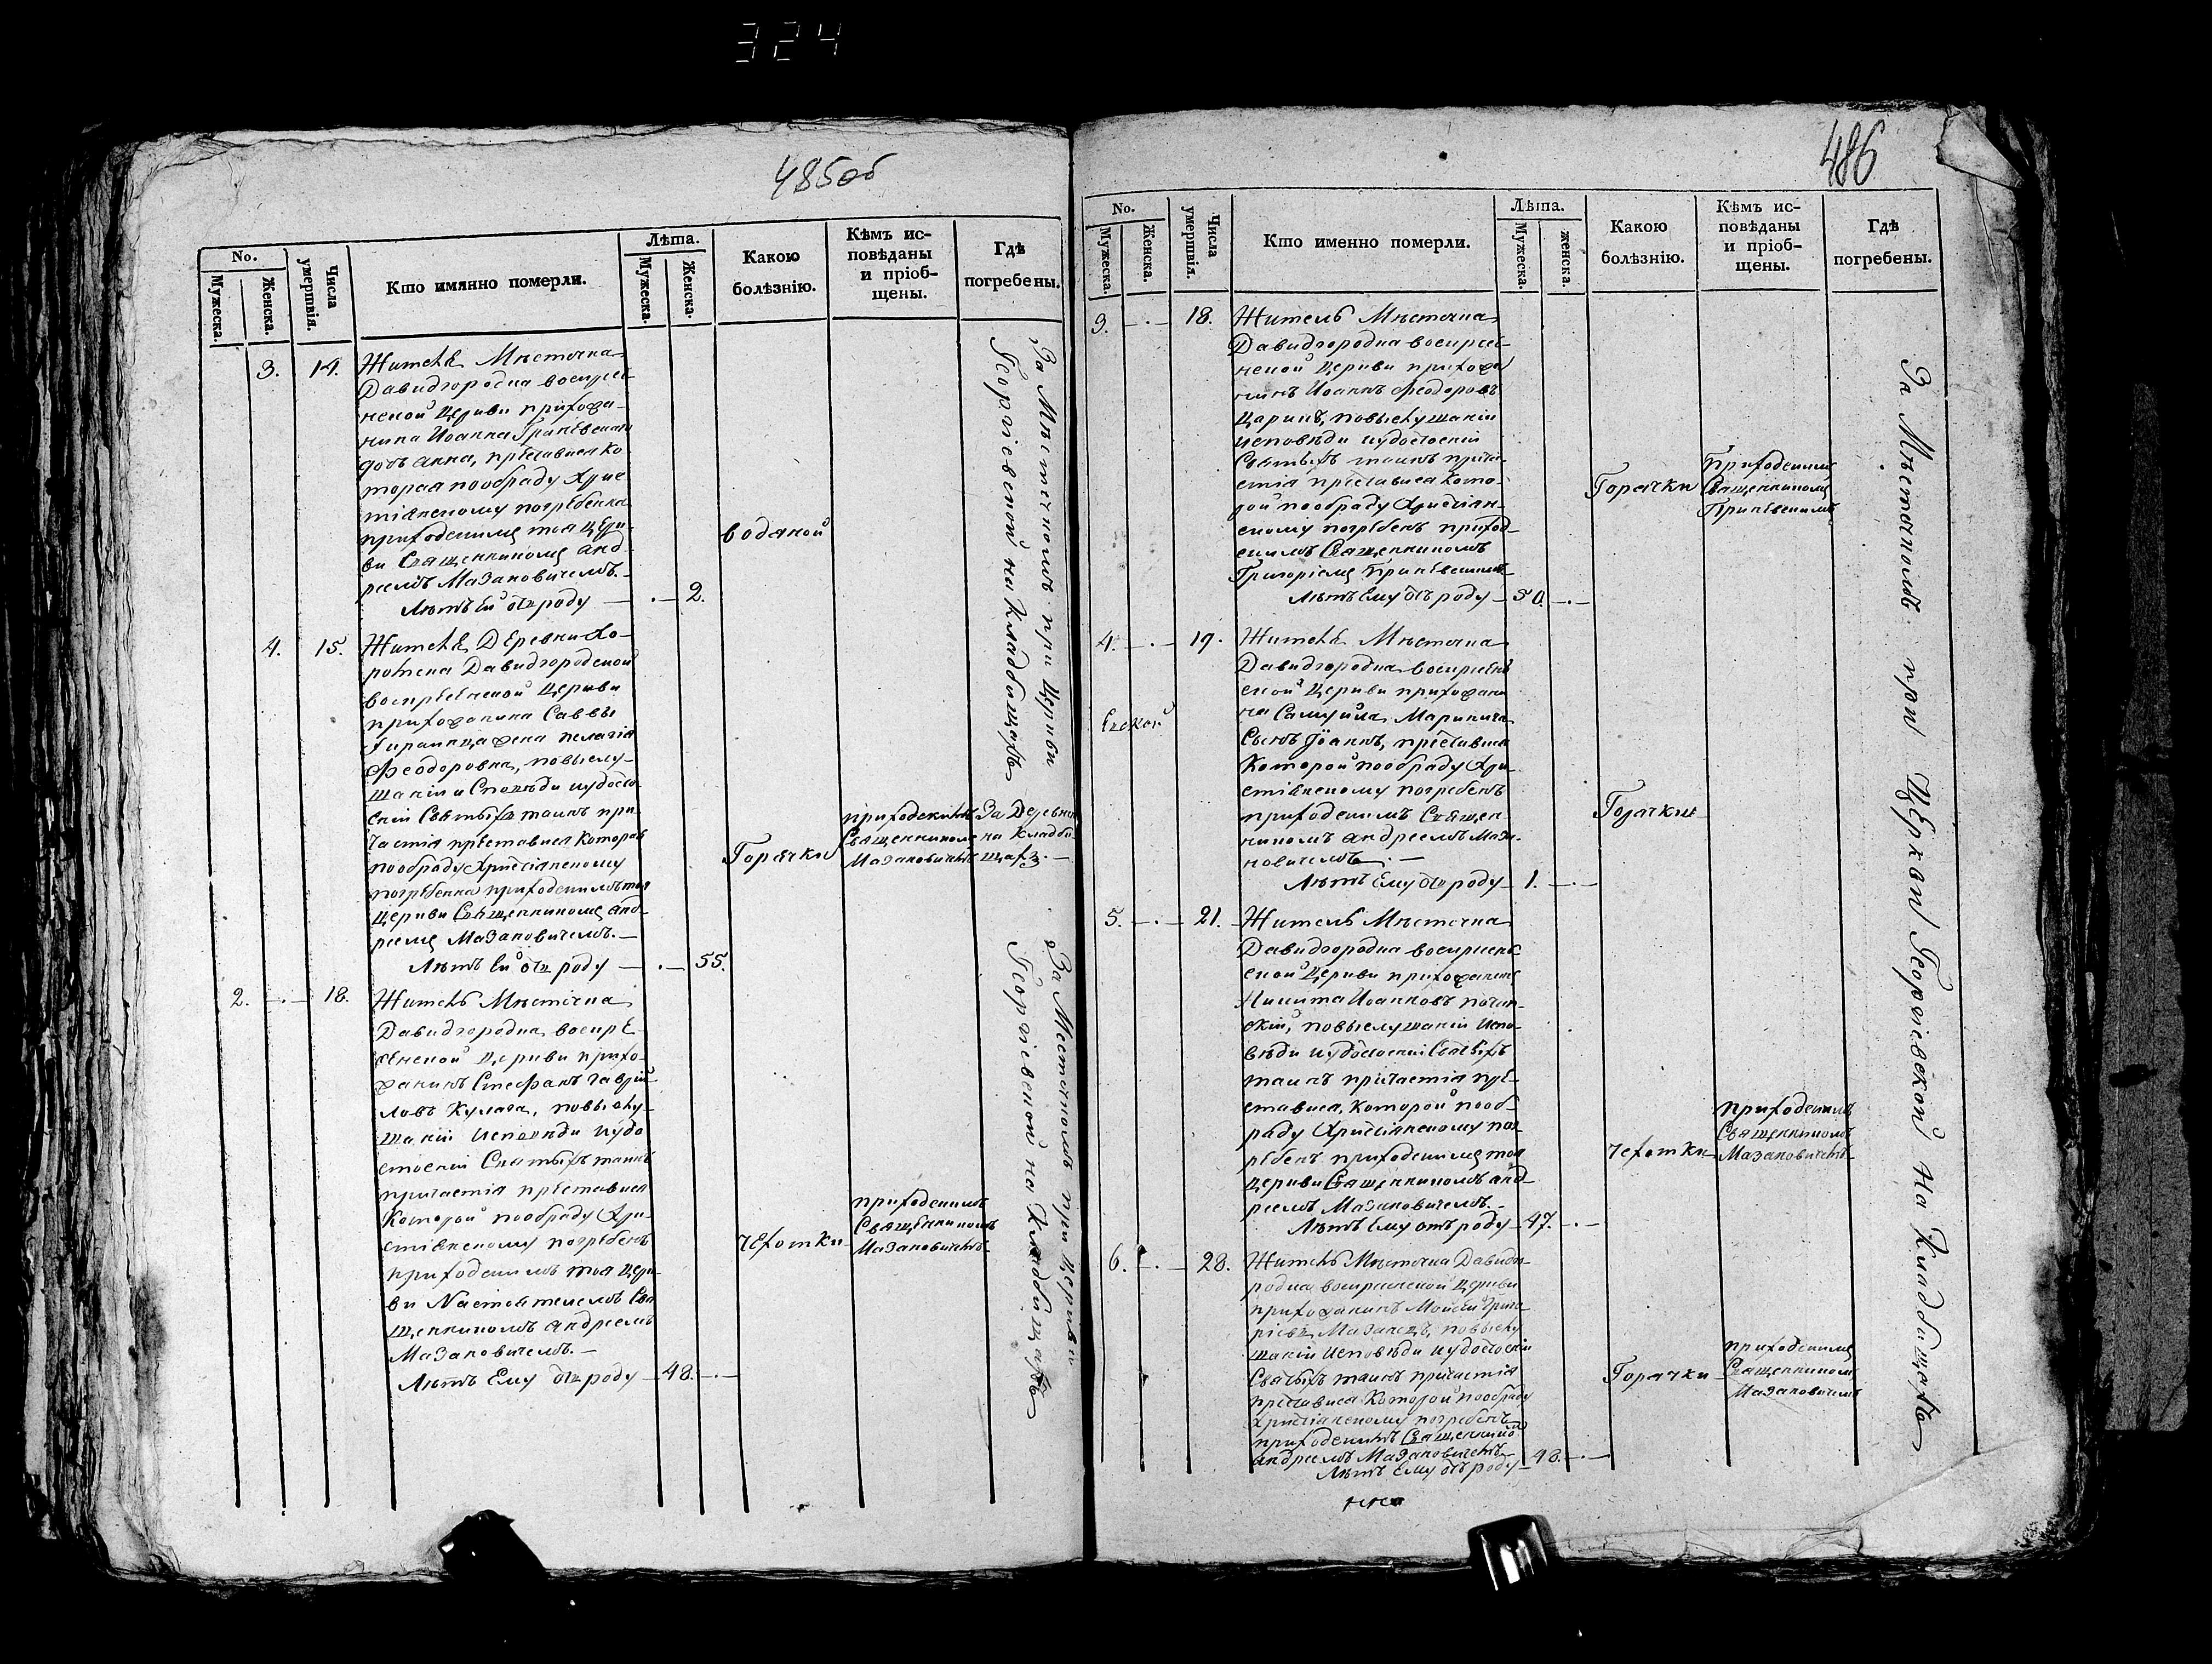 324
485об
No.
Мужеска.
Женска.
Числа умертвія.
Кто имянно померли.
Лѣта.
Мужеска.
Женска.
Какою
болѣзнію.
Кѣмъ ис-
повѣданы
и пріоб-
щены.
Гдѣ
погребены.
3. 14. Жителя Мѣстечка
Давидгородка воскресе-
нской Церкви прихожа-
нина Иоанна
дочь анна, преставися ко
торая пообряду Хрис
тіянскому погребенна
приходскимъ тоя Церк-
ви Священникомъ анд-
реемъ Мазановичемъ.
Лѣтъ Ей отъ роду — 2.
водяной
За Мѣстечкомъ при Церкви
Георгіевской на Кладбищахъ
4. 15. Жителя Деревни Хо-
ромска Давидгородской
воскресенской Церкви
прихожанина Саввы
жена пелагія
Феодоровна, повыслу-
шаніи Споведи иудосто
еніи Святыхъ таинъ при-
частія преставися Которая
пообряду Христіянскому
погребенна приходскимъ тоя
Церкви Священникомъ анд-
реемъ Мазановичемъ. —
Лѣтъ Ей отъ роду — 55.
Горячки
приходскимъ
Священникомъ
Мазановичемъ
За Деревнею
на кладби
щахъ. —
2. 18. Житель Мѣстечка
Давидгородка воскре
сенской Церкви прихо-
жанинъ Стефанъ Гаврій
ловъ Кулага, повыслу-
шаніи Исповѣди иудо
стоеніи Святыхъ таинъ
причастія преставися
Которой пообряду Хри-
стіянскому погребенъ
приходскимъ тоя Церк-
ви Настоятелемъ Свя
щенникомъ андреемъ
Мазановичемъ. —
Лѣтъ Ему отъ роду — 48.
чехотки
приходскимъ
Священникомъ
Мазановичемъ
За Местечкомъ при Церкви
Георгіевской на Кладбищахъ
486
No.
Мужеска.
Женска.
Числа умертвія.
Кто именно померли.
Лѣта.
Мужеска.
женска.
Какою
болѣзнію.
Кѣмъ ис-
повѣданы
и пріоб-
щены.
Гдѣ
погребены.
3. 18. Житель Мѣстечка
Давидгородка воскресе-
нской Церкви прихожа
нинъ Иоаннъ Феодоровъ
Царикъ, повыслушаніи
исповѣди иудостоеніи
Святыхъ таинъ прича-
стія преставися Кото-
рой пообряду Христіян-
скому погребенъ приход-
скимъ Священникомъ
Григоріемъ
Лѣтъ Ему отъ роду — 50.
Горячки
Приходскимъ
Священникомъ
4. 19. Жителя Мѣстечка
Давидгородка воскресен
ской Церкви прихожани
на Самуйла Маринича
Сынъ Іоаннъ, преставися
Которой пообряду Хри-
стіянскому погребенъ
приходскимъ Священ
никомъ андреемъ Маза
новичемъ. —
Лѣтъ Ему отъ роду — 1.
Горячки
5. 21. Житель Мѣстечка
Давидгородка воскресен
ской Церкви прихожанинъ
Никита Иоанновъ
повыслушаніи Испо-
вѣди иудостоеніи Святыхъ
таинъ причастія пре-
ставися, Которой пооб-
ряду Христіянскому пог
ребенъ приходскимъ тоя
Церкви Священникомъ анд-
реемъ Мазановичемъ. —
Лѣтъ Ему отъ роду — 47.
чехотки
приходскимъ
Священникомъ
Мазановичемъ
6. 28. Житель Мѣстечка Давидго-
родка воскресенской Церкви
прихожанинъ Мойсей Григо
ріевъ Мазанецъ, повыслу
шаніи Исповѣди иудостоеніи
Святыхъ таинъ причастія
преставися Которой пообряду
Христіянскому погребенъ
приходскимъ Священнико
андреемъ Мазановичемъ —
Лѣтъ Ему отъ роду — 48.
Горячки
приходскимъ
Священникомъ
Мазановичемъ
За Мѣстечкомъ при Церкви Георгіевской на Кладбищахъ